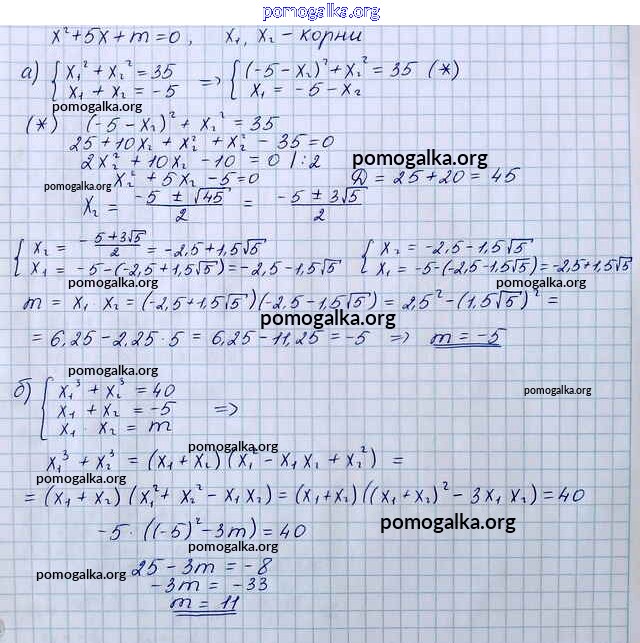 pomogalka.org
x² + 5x + m = 0, x₁, x₂ – корни
а) { x₁² + x₂² = 35 => { (-5 - x₂)² + x₂² = 35 (*)
x₁ + x₂ = -5 x₁ = -5 - x₂
pomogalka.org
(*) (-5 - x₂)² + x₂² = 35
25 + 10x₂ + x₂² + x₂² - 35 = 0
2x₂² + 10x₂ - 10 = 0 | : 2
pomogalka.org
pomogalka.org x₂² + 5x₂ - 5 = 0 D = 25 + 20 = 45
x₂ = (-5 ± √45)/2 = (-5 ± 3√5)/2
{ x₂ = -(5+3√5)/2 = -2,5 + 1,5√5 { x₂ = -2,5 - 1,5√5
x₁ = -5 - (-2,5 + 1,5√5) = -2,5 - 1,5√5 x₁ = -5 - (-2,5 - 1,5√5) = -2,5 + 1,5√5
pomogalka.org pomogalka.org
m = x₁ x₂ = (-2,5 + 1,5√5)(-2,5 - 1,5√5) = 2,5² - (1,5√5)² =
pomogalka.org
= 6,25 - 2,25 · 5 = 6,25 - 11,25 = -5 => m = -5
б) { x₁³ + x₂³ = 40
pomogalka.org
x₁ + x₂ = -5 =>
x₁ · x₂ = m
pomogalka.org
x₁³ + x₂³ = (x₁ + x₂)(x₁² - x₁x₂ + x₂²) =
pomogalka.org
= (x₁ + x₂)(x₁² + x₂² - x₁x₂) = (x₁ + x₂)((x₁ + x₂)² - 3x₁x₂) = 40
pomogalka.org
-5 · ((-5)² - 3m) = 40
pomogalka.org
25 - 3m = -8
pomogalka.org
-3m = -33
m = 11